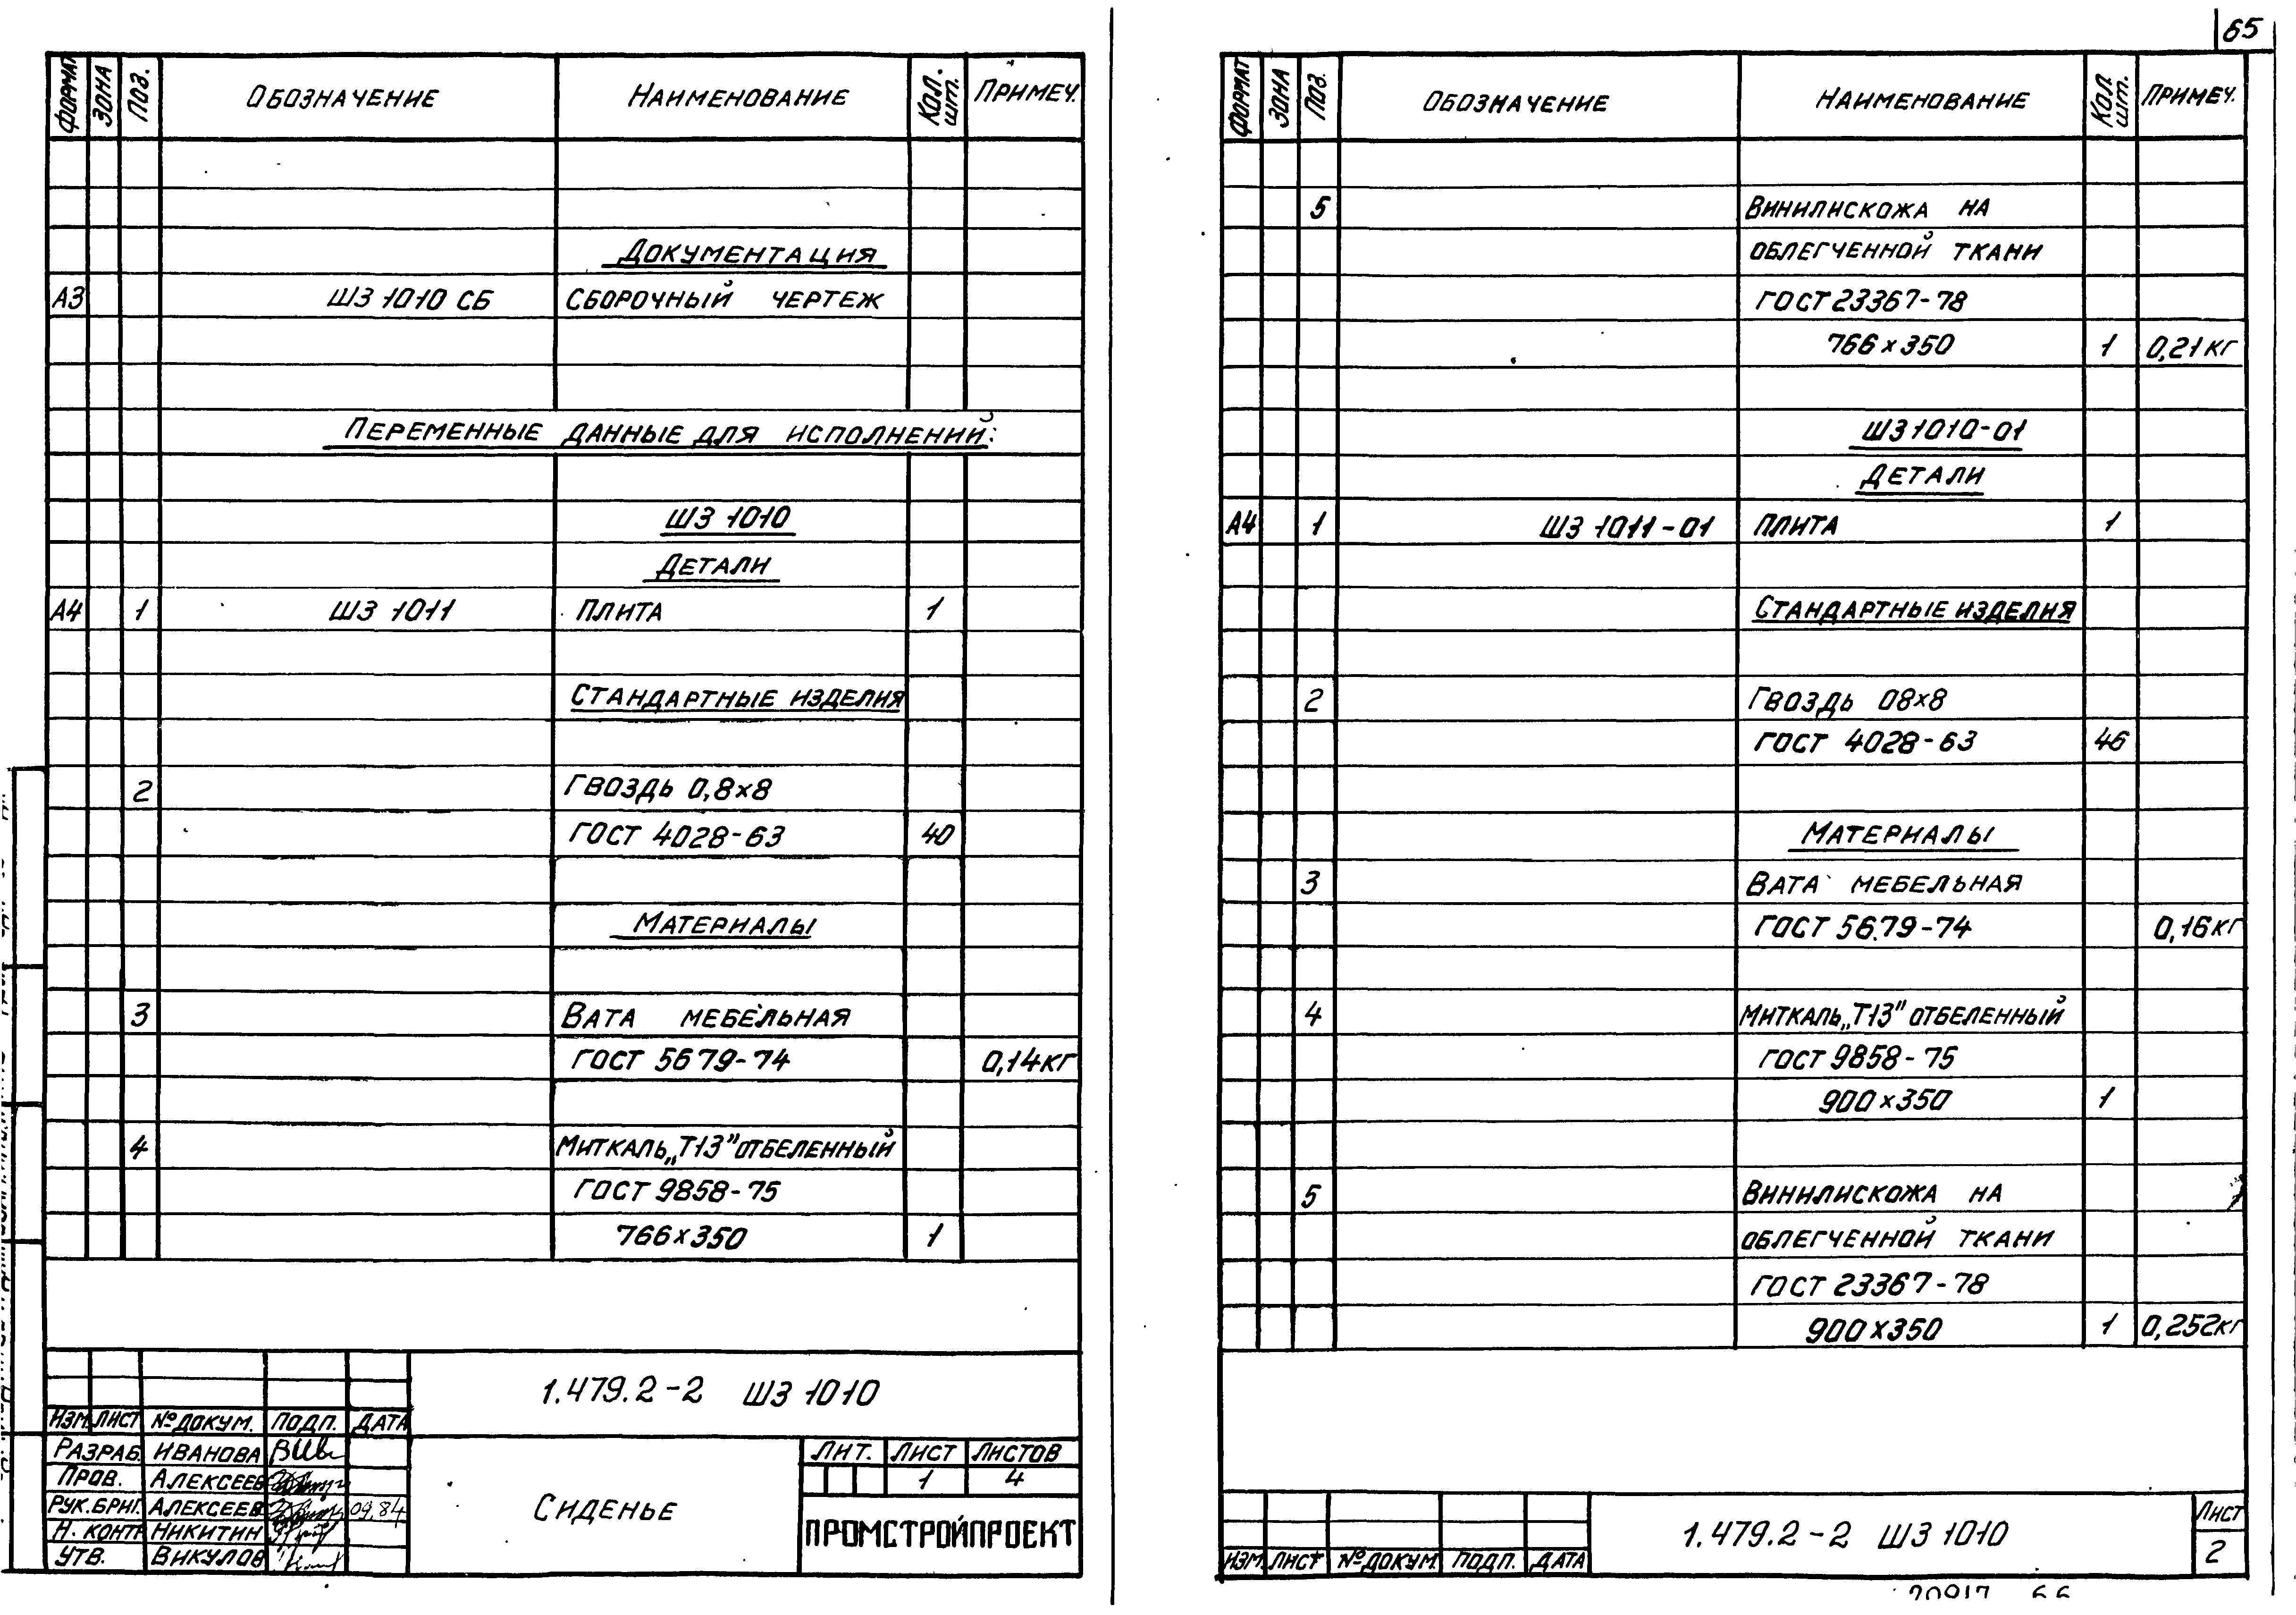 65
ФОРМАТ ЗОНА ПОЗ. ОБОЗНАЧЕНИЕ НАИМЕНОВАНИЕ КОЛ. ШТ. ПРИМЕЧ.
ДОКУМЕНТАЦИЯ
А3 ШЗ 1010 СБ СБОРОЧНЫЙ ЧЕРТЕЖ
ПЕРЕМЕННЫЕ ДАННЫЕ ДЛЯ ИСПОЛНЕНИЙ:
ШЗ 1010
ДЕТАЛИ
А4 1 ШЗ 1011 ПЛИТА 1
СТАНДАРТНЫЕ ИЗДЕЛИЯ
2 ГВОЗДЬ 0,8х8
ГОСТ 4028-63 40
МАТЕРИАЛЫ
3 ВАТА МЕБЕЛЬНАЯ
ГОСТ 5679-74 0,14кг
4 МИТКАЛЬ „Т13" ОТБЕЛЕННЫЙ
ГОСТ 9858-75
766х350 1
1.479.2-2 ШЗ 1010
ИЗМ. ЛИСТ № ДОКУМ. ПОДП. ДАТА
РАЗРАБ. ИВАНОВА
ПРОВ. АЛЕКСЕЕВ
РУК.БРИГ. АЛЕКСЕЕВ 09.84
Н. КОНТР НИКИТИН
УТВ. ВИКУЛОВ
СИДЕНЬЕ
ЛИТ. ЛИСТ ЛИСТОВ
1 4
ПРОМСТРОЙПРОЕКТ
ФОРМАТ ЗОНА ПОЗ. ОБОЗНАЧЕНИЕ НАИМЕНОВАНИЕ КОЛ. ШТ. ПРИМЕЧ.
5 ВИНИЛИСКОЖА НА
ОБЛЕГЧЕННОЙ ТКАНИ
ГОСТ 23367-78
766х350 1 0,21кг
ШЗ 1010-01
ДЕТАЛИ
А4 1 ШЗ 1011-01 ПЛИТА 1
СТАНДАРТНЫЕ ИЗДЕЛИЯ
2 ГВОЗДЬ 08х8
ГОСТ 4028-63 46
МАТЕРИАЛЫ
3 ВАТА МЕБЕЛЬНАЯ
ГОСТ 5679-74 0,16кг
4 МИТКАЛЬ „Т13" ОТБЕЛЕННЫЙ
ГОСТ 9858-75
900х350 1
5 ВИНИЛИСКОЖА НА
ОБЛЕГЧЕННОЙ ТКАНИ
ГОСТ 23367-78
900х350 1 0,252кг
ИЗМ. ЛИСТ № ДОКУМ. ПОДП. ДАТА
1.479.2-2 ШЗ 1010
ЛИСТ
2